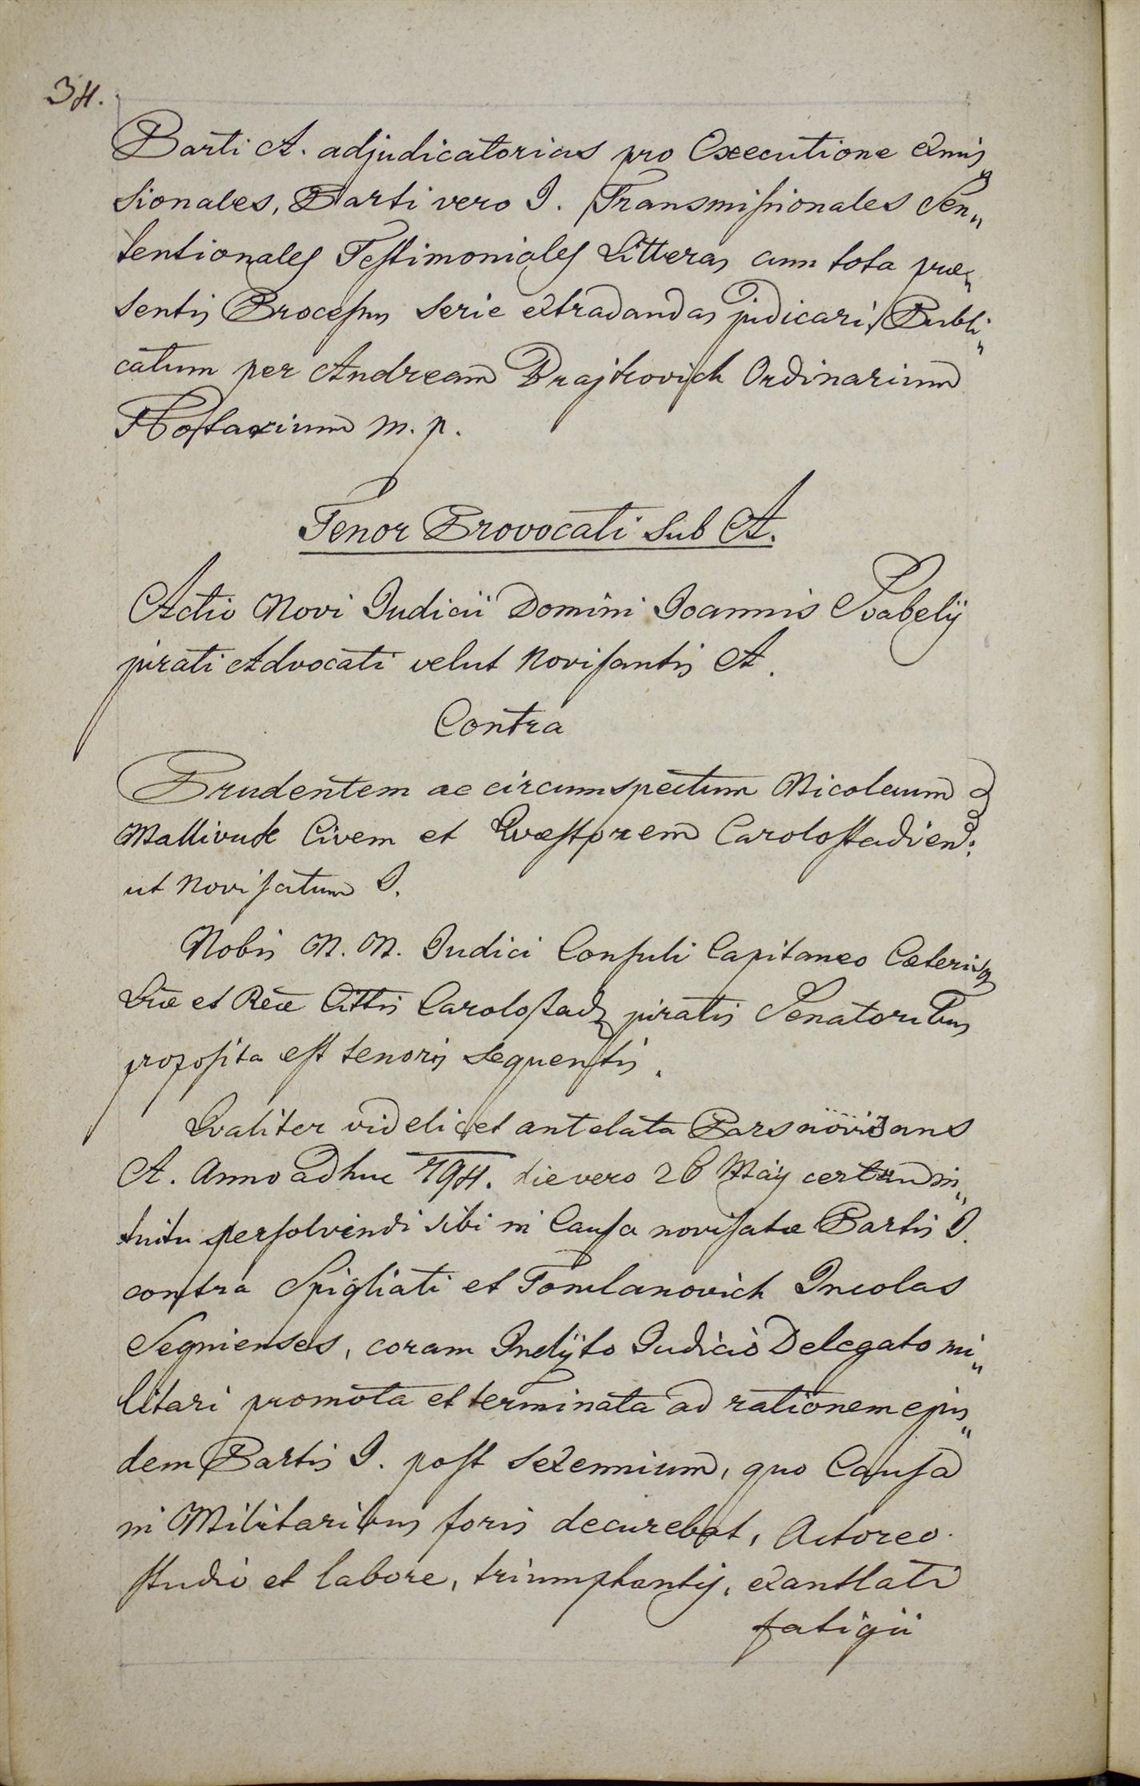 34.
Parti A. adjudicatorias pro Executione exmis„
sionales, Parti vero I. Transmissionales Sen„
tentionales Testimoniales Litteras cum tota præ„
sentis Processus serie extradandas judicari. Publi„
catum per Andream Brajkovich Ordinarium
Notarium m. p.
Tenor Provocati sub A.
Actio Novi Judicii Domini Joannis Svabelÿ
jurati Advocati velut Novisantis A.
Contra
Prudentem ac circumspectum Nicolaum
Mallivuk Civem et Quæstorem Carolostadien:
ut Novisatum I.
Nobis N. N. Judici Consuli Capitaneo Cæterisq
Lræ et Reæ Cittis Carolostad juratis Senatoribus
proposita est tenoris sequentis.
Qvaliter videlicet antelata Pars novisans
A. Anno adhuc 794. die vero 26 Maÿ certum in„
tuitu persolvendi sibi in Causa novisatæ Partis I.
contra Spigliati et Tomlanovich Incolas
Segnienses, coram Inclÿto Judicio Delegato mi„
litari promota et terminata ad rationem ejus„
dem Partis I. post sexennium, quo Causa
in Militaribus foris decurebat, Actoreo
studio et labore, triumphantis, exantlati
fatigii